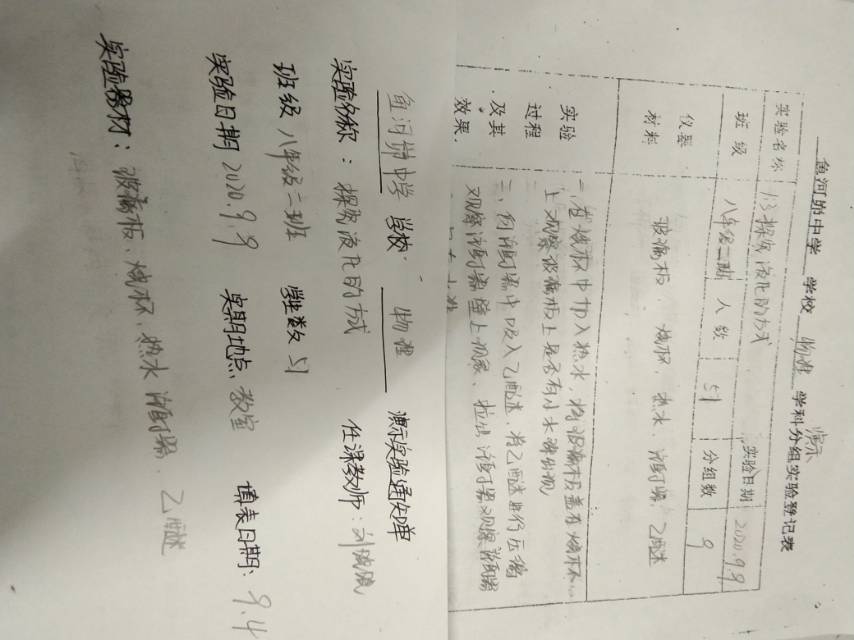 鱼河峁中学 学校 物理 学科分组实验登记表
演示
实验名称 1.3探究液化的方式 实验日期 2020.9.9
班级 八年级二班 人数 51 分组数 9
仪器材料 玻璃板、烧杯、热水、注射器、乙醚
实验过程及其效果.
一、在烧杯中加入热水,将玻璃板盖在烧杯
上观察玻璃板上是否有小水珠出现
二、向注射器中吸入乙醚,将乙醚进行压缩
观察注射器壁上现象、拉出注射器观察注射器
鱼河峁中学 学校 物理 演示实验通知单
实验名称:探究液化的方式 任课教师:刘
班级 八年级二班 学生数 51 填表日期:9.4
实验日期 2020.9.9 实验地点 教室
实验器材:玻璃板、烧杯、热水 注射器、乙醚